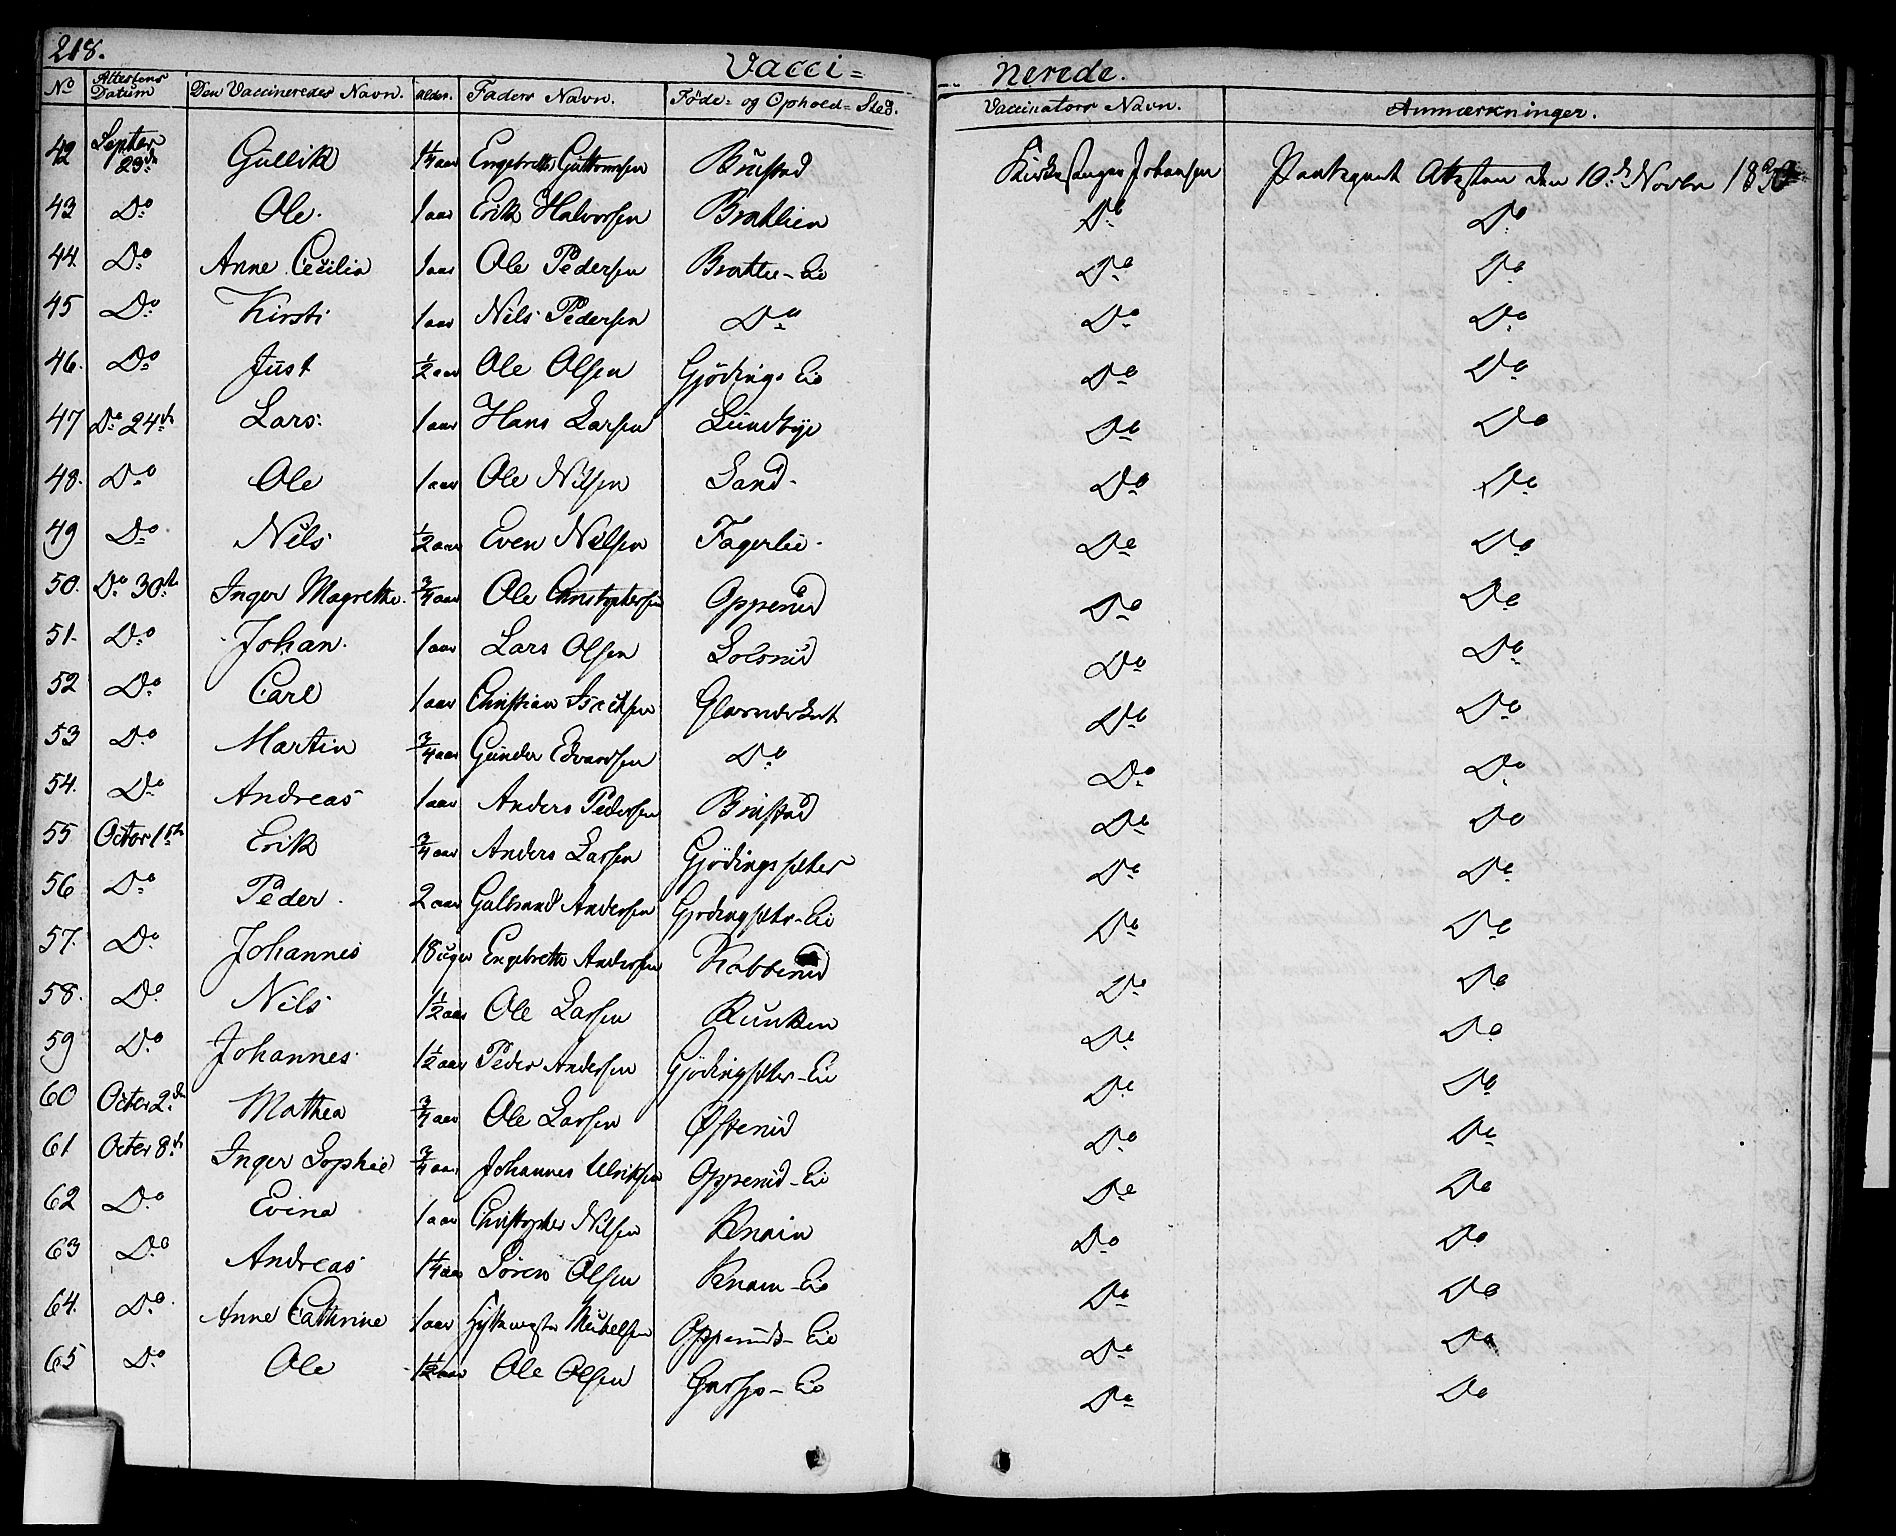 218.
Vacci= nerede.
No Attestens Datum Den Vaccineredes Navn. Alder. Faders Navn. Føde- og Ophold-Sted. Vaccinators Navn. Anmærkninger.
42 Septer 23de Gullik 1 1/4 aar Engebrett Guttormsen Brustad Kirkesanger Johansen den 10de Novbr 1830
43 Do Ole. 1 aar Erik Halvorsen Bratlien Do Do
44. Do Anne Cecilia 1 aar Ole Pedersen Bratlie-Eie Do Do
45 Do Kirsti 1 aar Nils Pedersen Do Do Do
46. Do Just 1/2 aar Ole Olsen Gjødings Eie Do Do
47 Do 24de Lars. 1 aar Hans Larsen Lundbye Do Do
48. Do Ole 1 aar Ole Nilsen Sand. Do Do
49 Do Nils 1/2 aar Even Nilsen Fagerlie. Do Do
50. Do 30te Inger Magrethe. 3/4 aar Ole Christophersen Oppenud Do Do
51. Do Johan. 1 aar Lars Olsen Do Do
52 Do Carl 1 aar Christian Isacksen Do Do
53 Do Martin 3/4 aar Gunder Edvardsen Do Do Do
54. Do Andreas 1 aar Anders Pedersen Brustad Do Do
55 Octor 1ste Erik 3/4 aar Anders Larsen Gjødingsæter Do Do
56 Do Peder. 2 aar Gulbrand Andersen Gjødingsæter-Eie Do Do
57. Do Johannes 18 uger Engebrett Andersen Do Do
58. Do Nils 1 1/2 aar Ole Larsen Runken Do Do
59 Do Johannes 1 1/2 aar Peder Andersen Gjødingsæter-Eie Do Do
60 Octer 2den Mathea 3/4 aar Ole Larsen Østenud Do Do
61 Octer 8de Inger Sophie 3/4 aar Johannes Ulriksen Oppenud-Eie Do Do
62 Do Evina 1 aar Christopher Nilsen Knain Do Do
63 Do Andreas 1 1/4 aar Sören Olsen Knain-Eie Do Do
64. Do Anne Cathrine 1 aar Oppenuds-Eie Do Do
65 Do Ole 1 1/2 aar Ole Olsen Garsjø-Eie Do Do